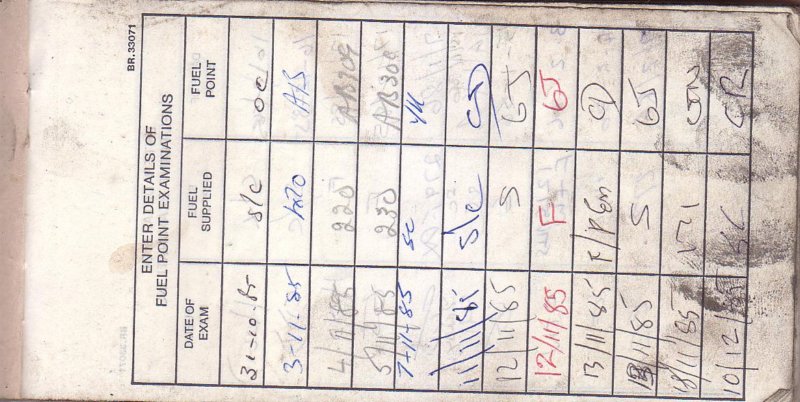 BR.33071
ENTER DETAILS OF
FUEL POINT EXAMINATIONS
DATE OF EXAM FUEL SUPPLIED FUEL POINT
31-10-85 S/C OC
3-11-85 1220 AB
4/11/85 220 AB309
5/11/85 230 AB308
7-11-85 SC YK
11/11/85 S/C CD
12/11/85 S 65
12/11/85 F 65
13/11/85 CD
11/85 S 65
18/11/85
10/12/85 SC CR